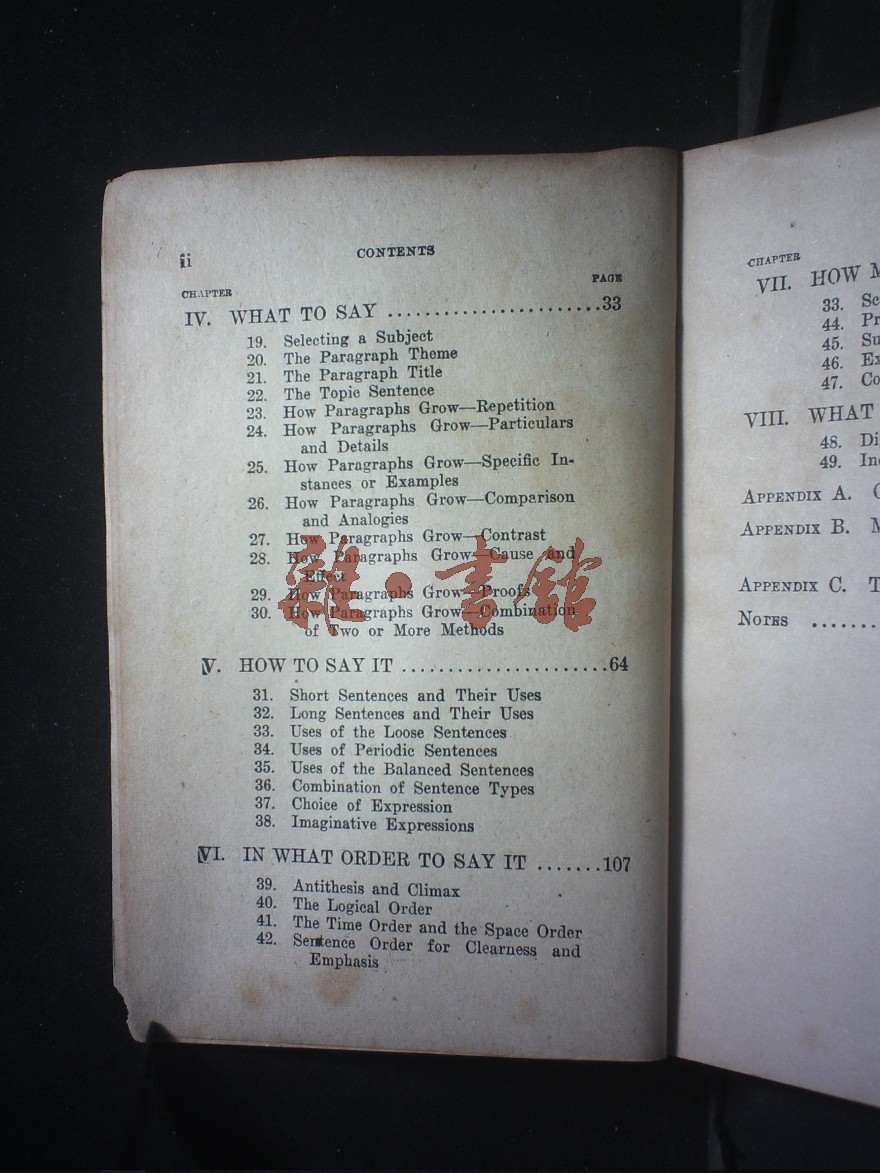 ii
CONTENTS
CHAPTER
PAGE
IV. WHAT TO SAY ........................33
19. Selecting a Subject
20. The Paragraph Theme
21. The Paragraph Title
22. The Topic Sentence
23. How Paragraphs Grow—Repetition
24. How Paragraphs Grow—Particulars
and Details
25. How Paragraphs Grow—Specific In-
stances or Examples
26. How Paragraphs Grow—Comparison
and Analogies
27. How Paragraphs Grow—Contrast
28. How Paragraphs Grow—Cause and
Effect
29. How Paragraphs Grow—Proofs
30. How Paragraphs Grow—Combination
of Two or More Methods
雜·書館
V. HOW TO SAY IT ......................64
31. Short Sentences and Their Uses
32. Long Sentences and Their Uses
33. Uses of the Loose Sentences
34. Uses of Periodic Sentences
35. Uses of the Balanced Sentences
36. Combination of Sentence Types
37. Choice of Expression
38. Imaginative Expressions
VI. IN WHAT ORDER TO SAY IT .......107
39. Antithesis and Climax
40. The Logical Order
41. The Time Order and the Space Order
42. Sentence Order for Clearness and
Emphasis
CHAPTER
VII. HOW M
33. Sc
44. Pr
45. Su
46. Ex
47. Co
VIII. WHAT
48. Di
49. Inc
APPENDIX A.
APPENDIX B. M
APPENDIX C. T
NOTES ........